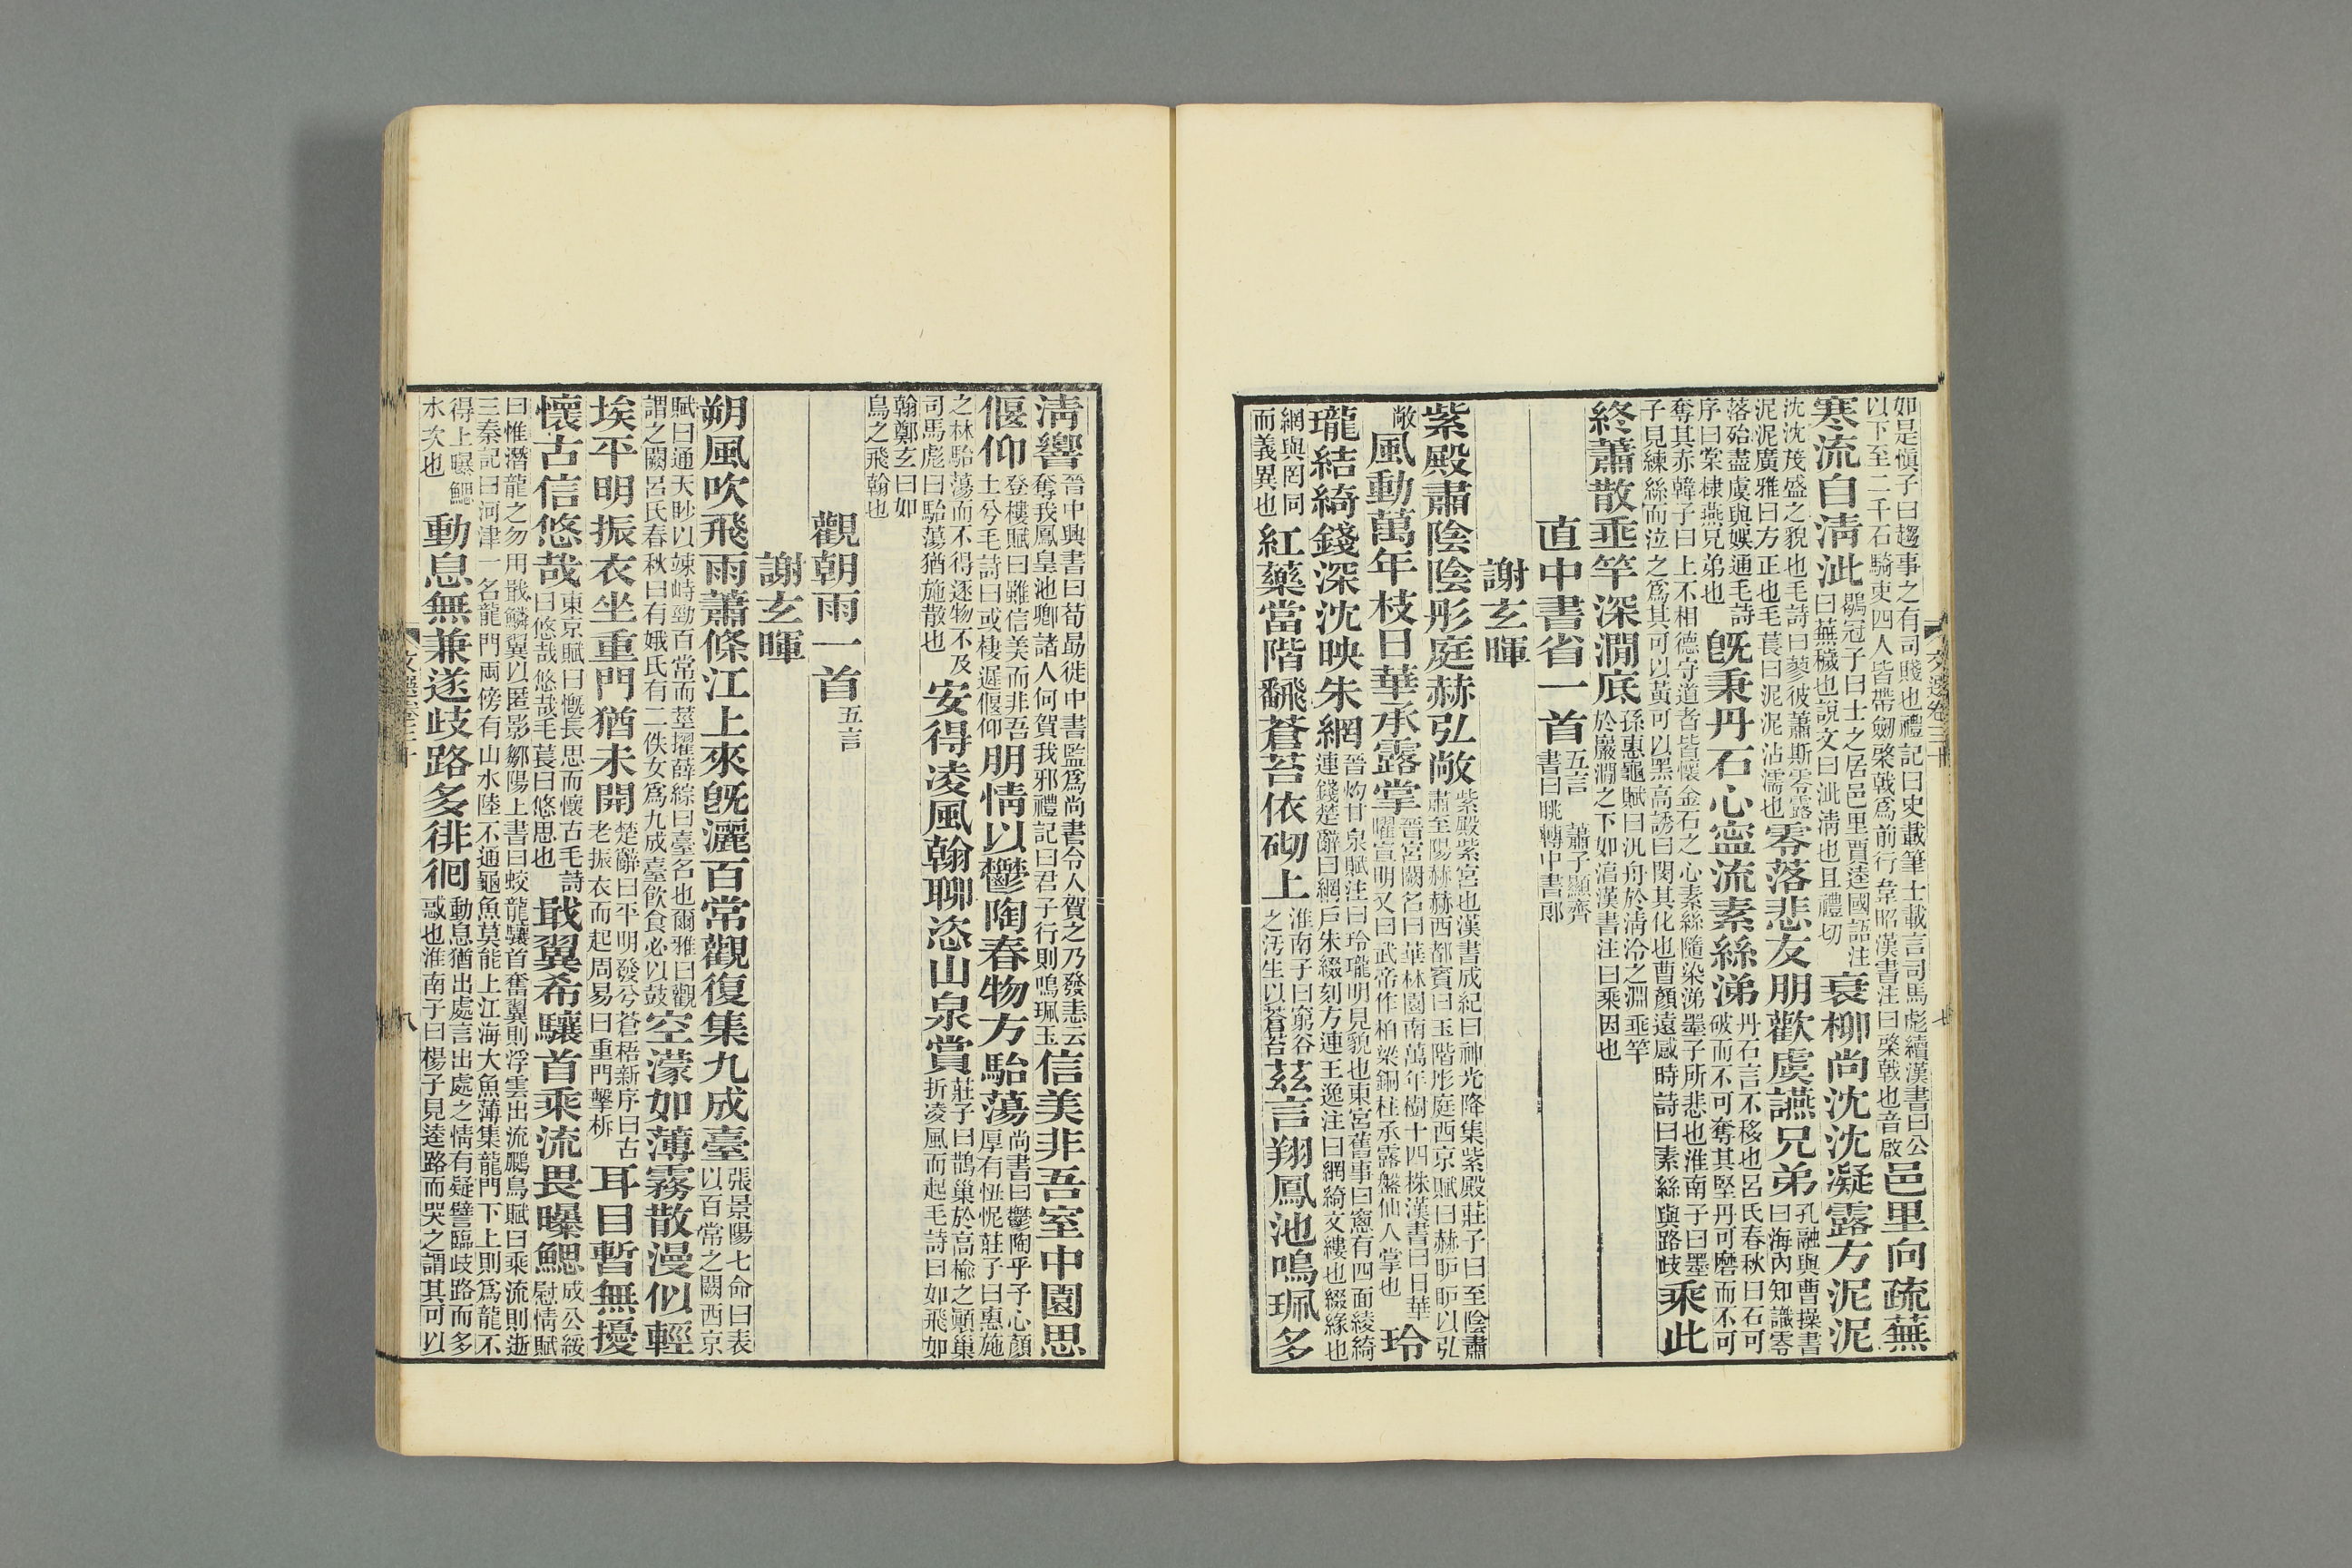 如是愼子曰趨事之有司賤也禮記曰史載筆士載言司馬彪續漢書曰公
以下至二千石騎吏四人皆帶劒棨戟爲前行韋昭漢書注曰棨戟也音啟
邑里向疏蕪
寒流自清泚
鶡冠子曰士之居邑里賈逵國語注
曰蕪穢也說文曰泚清也且禮切
衰柳尚沈沈凝露方泥泥
沈沈茂盛之貌也毛詩曰蓼彼蕭斯零露
泥泥廣雅曰方正也毛萇曰泥泥沾濡也
零落悲友朋歡虞讌兄弟
孔融與曹操書
曰海內知識零
落殆盡虞與娛通毛詩
序曰棠棣燕兄弟也
旣秉丹石心寍流素絲涕
丹石言不移也呂氏春秋曰石可
破而不可奪其堅丹可磨而不可
奪其赤韓子曰上不相德守道者皆懷金石之心素絲隨染涕墨子所悲也淮南子曰墨
子見練絲而泣之爲其可以黃可以黑高誘曰閔其化也曹顏遠感時詩曰素絲與路歧
乘此
終蕭散垂竿深澗底
孫惠龜賦曰汎舟於清泠之淵垂竿
於巖澗之下如湻漢書注曰乘因也
直中書省一首
五言 蕭子顯齊
書曰眺轉中書郎
謝玄暉
紫殿肅陰陰彤庭赫弘敞
紫殿紫宮也漢書成紀曰神光降集紫殿莊子曰至陰肅
肅至陽赫赫西都賓曰玉階彤庭西京賦曰赫昈昈以弘
敞
風動萬年枝日華承露掌
晉宮闕名曰華林園南萬年樹十四株漢書曰日華
曜宣明又曰武帝作柏梁銅柱承露盤仙人掌也
玲
瓏結綺錢深沈映朱網
晉灼甘泉賦注曰玲瓏明見貌也東宮舊事曰窻有四面綾綺
連錢楚辭曰網戶朱綴刻方連王逸注曰網綺文縷也綴緣也
網與罔同
而義異也
紅藥當階翻蒼苔依砌上
淮南子曰窮谷
之汚生以蒼苔
茲言翔鳳池鳴珮多
文選卷三十
清響
晉中興書曰荀勗徙中書監爲尚書令人賀之乃發恚云
奪我鳳皇池卿諸人何賀我邪禮記曰君子行則鳴珮玉
信美非吾室中園思
偃仰
登樓賦曰雖信美而非吾
土兮毛詩曰或棲遲偃仰
朋情以鬱陶春物方駘蕩
尚書曰鬱陶乎予心顏
厚有忸怩莊子曰惠施
之林駘蕩而不得逐物不及
司馬彪曰駘蕩猶施散也
安得凌風翰聊恣山泉賞
莊子曰鵲巢於高榆之顚巢
折凌風而起毛詩曰如飛如
翰鄭玄曰如
鳥之飛翰也
觀朝雨一首
五言
謝玄暉
朔風吹飛雨蕭條江上來旣灑百常觀復集九成臺
張景陽七命曰表
以百常之闕西京
賦曰通天眇以竦峙勁百常而莖擢薛綜曰臺名也爾雅曰觀
謂之闕呂氏春秋曰有娀氏有二佚女爲九成臺飲食必以鼓
空濛如薄霧散漫似輕
埃平明振衣坐重門猶未開
楚辭曰平明發兮蒼梧新序曰古
老振衣而起周易曰重門擊柝
耳目暫無擾
懷古信悠哉
東京賦曰慨長思而懷古毛詩
曰悠哉悠哉毛萇曰悠思也
戢翼希驤首乘流畏曝鰓
成公綏
慰情賦
曰惟潛龍之勿用戢鱗翼以匿影鄒陽上書曰蛟龍驤首奮翼則浮雲出流鵩鳥賦曰乘流則逝
三秦記曰河津一名龍門兩傍有山水陸不通龜魚莫能上江海大魚薄集龍門下上則爲龍不
得上曝鰓
水次也
動息無兼遂歧路多徘徊
動息猶出處言出處之情有疑譬臨歧路而多
惑也淮南子曰楊子見逵路而哭之謂其可以
文選卷三十
八